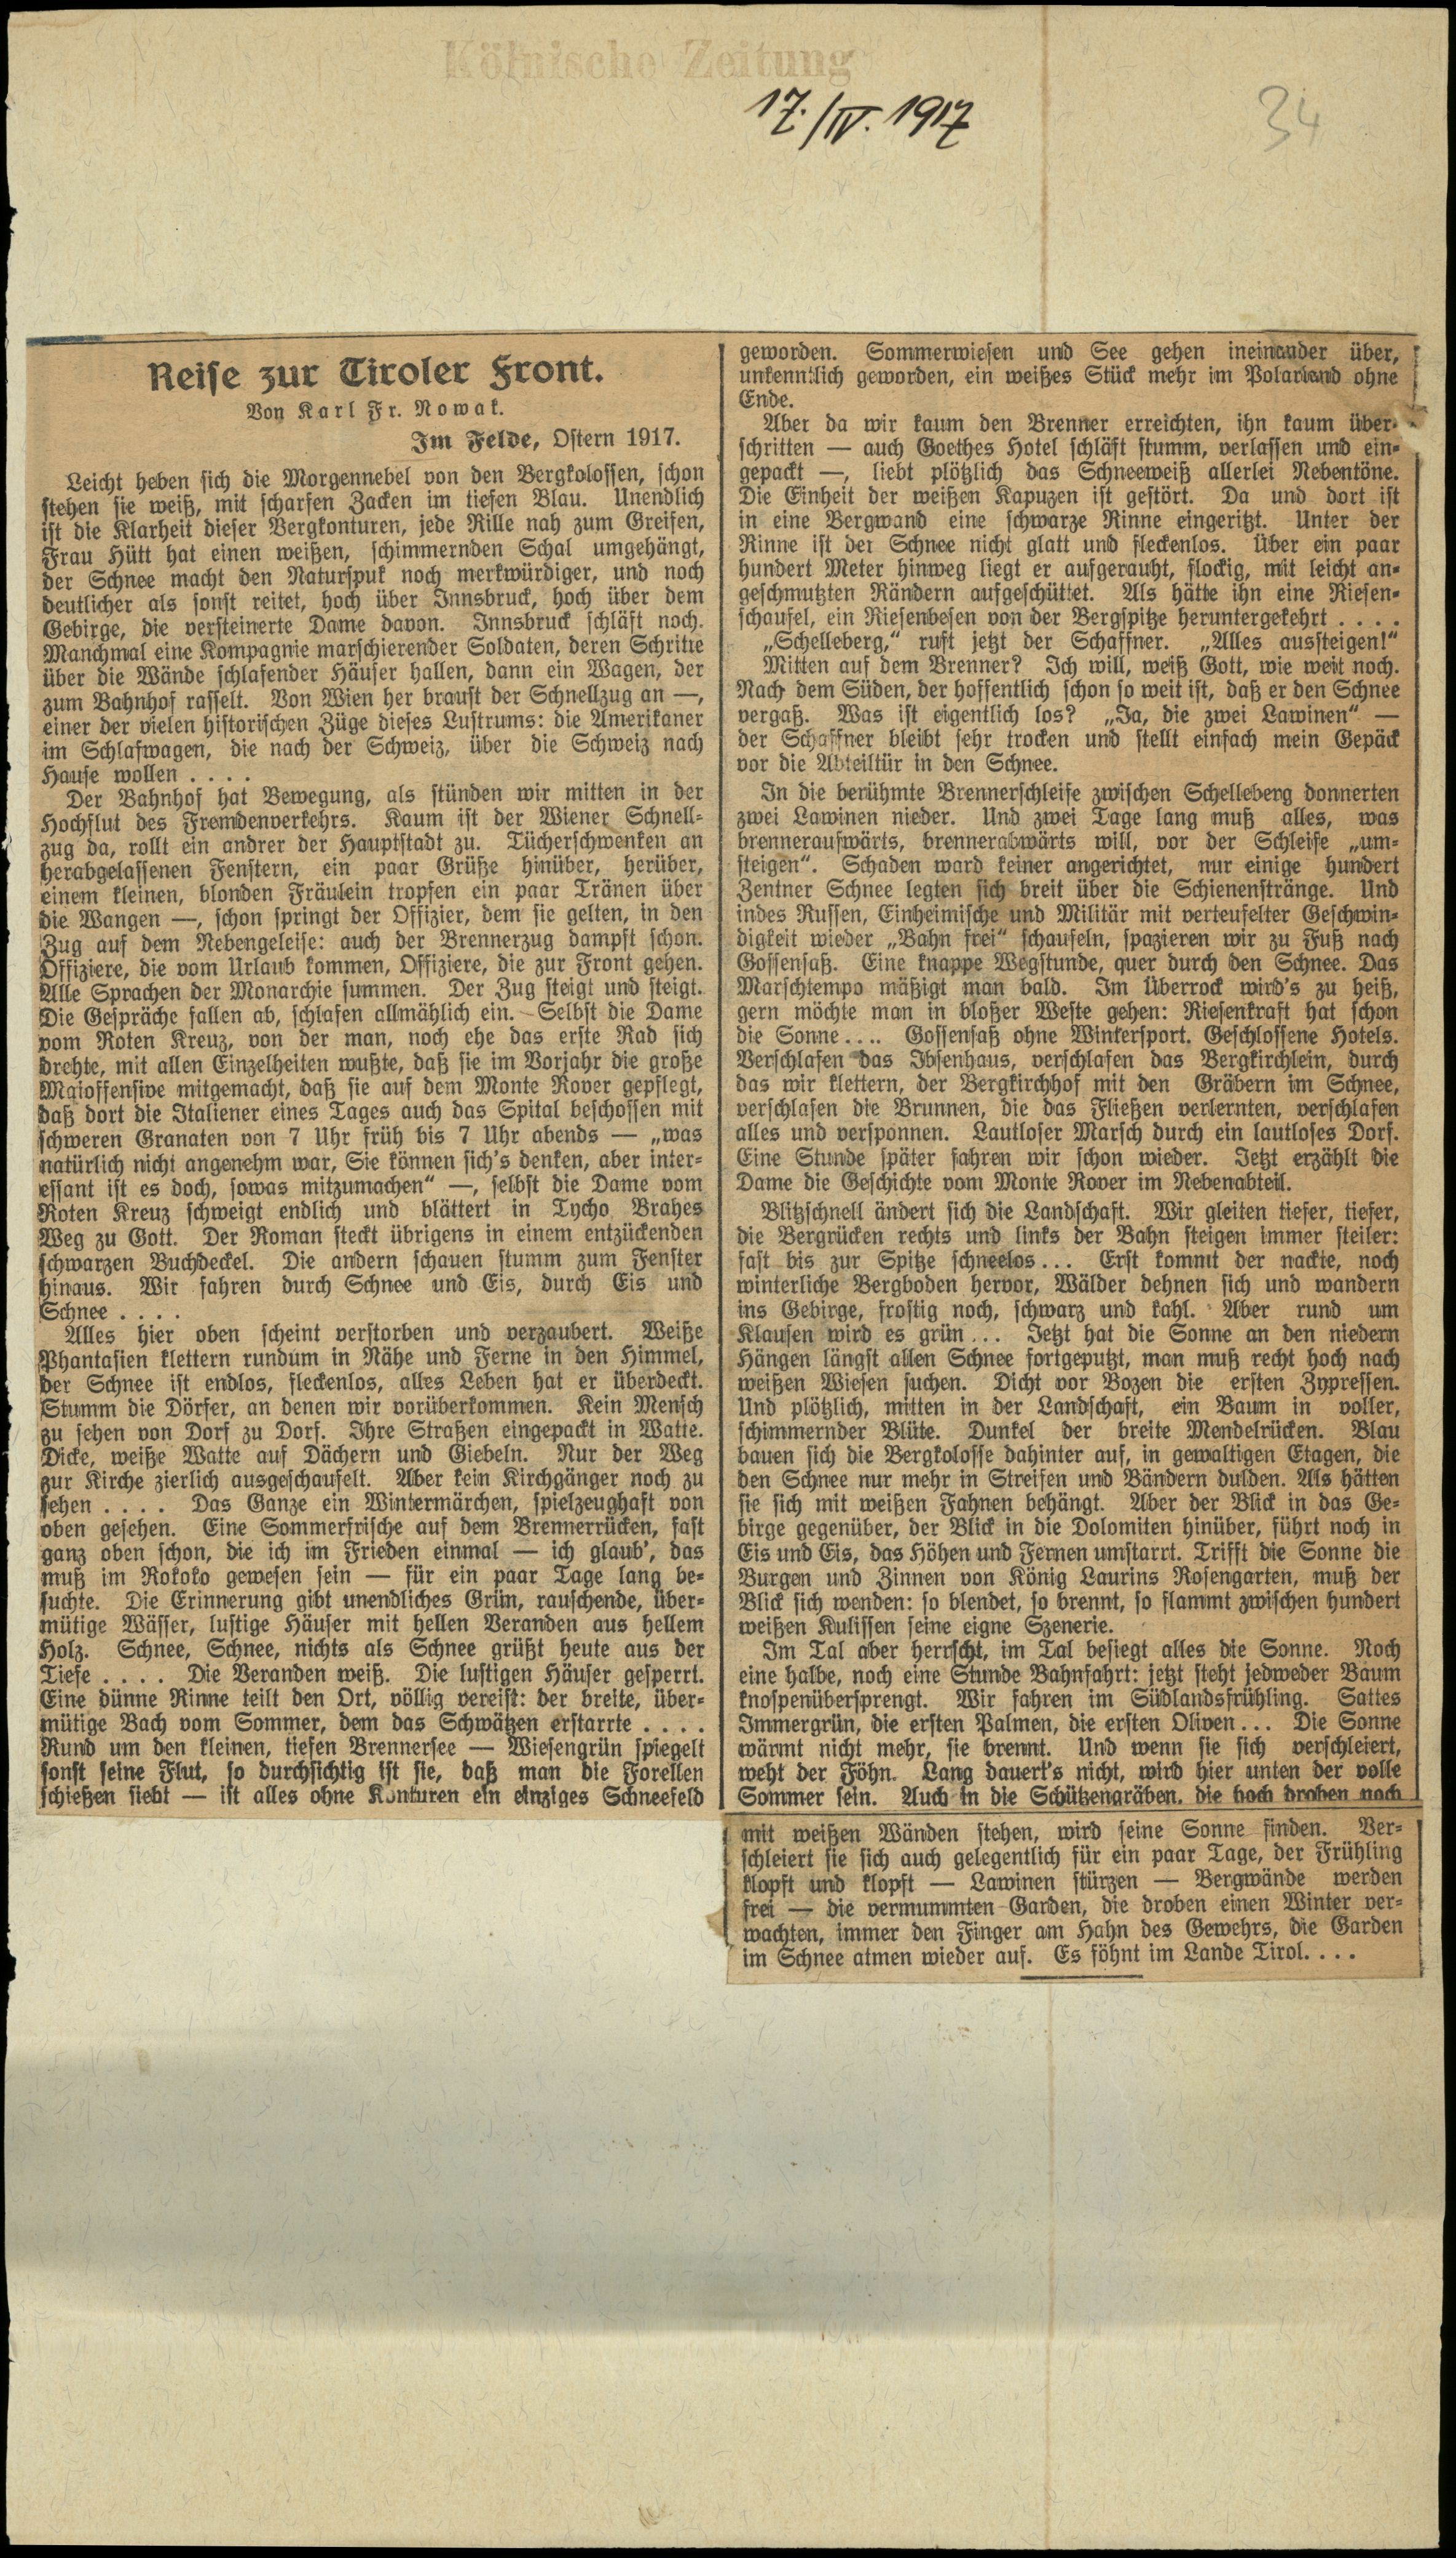 Kölnische Zeitung
17./IV. 1917
34
Reise zur Tiroler Front.
Von Karl Fr. Nowak.
Im Felde, Ostern 1917.
Leicht heben sich die Morgennebel von den Bergkolossen, schon
stehen sie weiß, mit scharfen Zacken im tiefen Blau. Unendlich
ist die Klarheit dieser Bergkonturen, jede Rille nah zum Greifen,
Frau Hütt hat einen weißen, schimmernden Schal umgehängt,
der Schnee macht den Naturspuk noch merkwürdiger, und noch
deutlicher als sonst reitet, hoch über Innsbruck, hoch über dem
Gebirge, die versteinerte Dame davon. Innsbruck schläft noch.
Manchmal eine Kompagnie marschierender Soldaten, deren Schritte
über die Wände schlafender Häuser hallen, dann ein Wagen, der
zum Bahnhof rasselt. Von Wien her braust der Schnellzug an —,
einer der vielen historischen Züge dieses Lustrums: die Amerikaner
im Schlafwagen, die nach der Schweiz, über die Schweiz nach
Hause wollen . . . .
Der Bahnhof hat Bewegung, als stünden wir mitten in der
Hochflut des Fremdenverkehrs. Kaum ist der Wiener Schnell-
zug da, rollt ein andrer der Hauptstadt zu. Tücherschwenken an
herabgelassenen Fenstern, ein paar Grüße hinüber, herüber,
einem kleinen, blonden Fräulein tropfen ein paar Tränen über
die Wangen —, schon springt der Offizier, dem sie gelten, in den
Zug auf dem Nebengeleise: auch der Brennerzug dampft schon.
Offiziere, die vom Urlaub kommen, Offiziere, die zur Front gehen.
Alle Sprachen der Monarchie summen. Der Zug steigt und steigt.
Die Gespräche fallen ab, schlafen allmählich ein. Selbst die Dame
vom Roten Kreuz, von der man, noch ehe das erste Rad sich
drehte, mit allen Einzelheiten wußte, daß sie im Vorjahr die große
Maioffensive mitgemacht, daß sie auf dem Monte Rover gepflegt,
daß dort die Italiener eines Tages auch das Spital beschossen mit
schweren Granaten von 7 Uhr früh bis 7 Uhr abends — „was
natürlich nicht angenehm war, Sie können sich's denken, aber inter-
essant ist es doch, sowas mitzumachen“ —, selbst die Dame vom
Roten Kreuz schweigt endlich und blättert in Tycho Brahes
Weg zu Gott. Der Roman steckt übrigens in einem entzückenden
schwarzen Buchdeckel. Die andern schauen stumm zum Fenster
hinaus. Wir fahren durch Schnee und Eis, durch Eis und
Schnee . . . .
Alles hier oben scheint verstorben und verzaubert. Weiße
Phantasien klettern rundum in Nähe und Ferne in den Himmel,
der Schnee ist endlos, fleckenlos, alles Leben hat er überdeckt.
Stumm die Dörfer, an denen wir vorüberkommen. Kein Mensch
zu sehen von Dorf zu Dorf. Ihre Straßen eingepackt in Watte.
Dicke, weiße Watte auf Dächern und Giebeln. Nur der Weg
zur Kirche zierlich ausgeschaufelt. Aber kein Kirchgänger noch zu
sehen . . . . Das Ganze ein Wintermärchen, spielzeughaft von
oben gesehen. Eine Sommerfrische auf dem Brennerrücken, fast
ganz oben schon, die ich im Frieden einmal — ich glaub', das
muß im Rokoko gewesen sein — für ein paar Tage lang be-
suchte. Die Erinnerung gibt unendliches Grün, rauschende, über-
mütige Wässer, lustige Häuser mit hellen Veranden aus hellem
Holz. Schnee, Schnee, nichts als Schnee grüßt heute aus der
Tiefe . . . . Die Veranden weiß. Die lustigen Häuser gesperrt.
Eine dünne Rinne teilt den Ort, völlig vereist: der breite, über-
mütige Bach vom Sommer, dem das Schwätzen erstarrte . . . .
Rund um den kleinen, tiefen Brennersee — Wiesengrün spiegelt
sonst seine Flut, so durchsichtig ist sie, daß man die Forellen
schießen sieht — ist alles ohne Konturen ein einziges Schneefeld
geworden. Sommerwiesen und See gehen ineinander über,
unkenntlich geworden, ein weißes Stück mehr im Polarland ohne
Ende.
Aber da wir kaum den Brenner erreichten, ihn kaum über-
schritten — auch Goethes Hotel schläft stumm, verlassen und ein-
gepackt —, liebt plötzlich das Schneeweiß allerlei Nebentöne.
Die Einheit der weißen Kapuzen ist gestört. Da und dort ist
in eine Bergwand eine schwarze Rinne eingeritzt. Unter der
Rinne ist der Schnee nicht glatt und fleckenlos. Über ein paar
hundert Meter hinweg liegt er aufgerauht, flockig, mit leicht an-
geschmutzten Rändern aufgeschüttet. Als hätte ihn eine Riesen-
schaufel, ein Riesenbesen von der Bergspitze heruntergekehrt . . . .
„Schelleberg,“ ruft jetzt der Schaffner. „Alles aussteigen!“
Mitten auf dem Brenner? Ich will, weiß Gott, wie weit noch.
Nach dem Süden, der hoffentlich schon so weit ist, daß er den Schnee
vergaß. Was ist eigentlich los? „Ja, die zwei Lawinen“ —
der Schaffner bleibt sehr trocken und stellt einfach mein Gepäck
vor die Abteiltür in den Schnee.
In die berühmte Brennerschleife zwischen Schelleberg donnerten
zwei Lawinen nieder. Und zwei Tage lang muß alles, was
brenneraufwärts, brennerabwärts will, vor der Schleife „um-
steigen“. Schaden ward keiner angerichtet, nur einige hundert
Zentner Schnee legten sich breit über die Schienenstränge. Und
indes Russen, Einheimische und Militär mit verteufelter Geschwin-
digkeit wieder „Bahn frei“ schaufeln, spazieren wir zu Fuß nach
Gossensaß. Eine knappe Wegstunde, quer durch den Schnee. Das
Marschtempo mäßigt man bald. Im Überrock wird's zu heiß,
gern möchte man in bloßer Weste gehen: Riesenkraft hat schon
die Sonne . . . . Gossensaß ohne Winkersport. Geschlossene Hotels.
Verschlafen das Ibsenhaus, verschlafen das Bergkirchlein, durch
das wir klettern, der Bergkirchhof mit den Gräbern im Schnee,
verschlafen die Brunnen, die das Fließen verlernten, verschlafen
alles und versponnen. Lautloser Marsch durch ein lautloses Dorf.
Eine Stunde später fahren wir schon wieder. Jetzt erzählt die
Dame die Geschichte vom Monte Rover im Nebenabteil.
Blitzschnell ändert sich die Landschaft. Wir gleiten tiefer, tiefer,
die Bergrücken rechts und links der Bahn steigen immer steiler:
fast bis zur Spitze schneelos . . . Erst kommt der nackte, noch
winterliche Bergboden hervor, Wälder dehnen sich und wandern
ins Gebirge, frostig noch, schwarz und kahl. Aber rund um
Klausen wird es grün . . . Jetzt hat die Sonne an den niedern
Hängen längst allen Schnee fortgeputzt, man muß recht hoch nach
weißen Wiesen suchen. Dicht vor Bozen die ersten Zypressen.
Und plötzlich, mitten in der Landschaft, ein Baum in voller,
schimmernder Blüte. Dunkel der breite Mendelrücken. Blau
bauen sich die Bergkolosse dahinter auf, in gewaltigen Etagen, die
den Schnee nur mehr in Streifen und Bändern dulden. Als hätten
sie sich mit weißen Fahnen behängt. Aber der Blick in das Ge-
birge gegenüber, der Blick in die Dolomiten hinüber, führt noch in
Eis und Eis, das Höhen und Fernen umstarrt. Trifft die Sonne die
Burgen und Zinnen von König Laurins Rosengarten, muß der
Blick sich wenden: so blendet, so brennt, so flammt zwischen hundert
weißen Kulissen seine eigne Szenerie.
Im Tal aber herrscht, im Tal besiegt alles die Sonne. Noch
eine halbe, noch eine Stunde Bahnfahrt: jetzt steht jedweder Baum
knospenübersprengt. Wir fahren im Südlandsfrühling. Sattes
Immergrün, die ersten Palmen, die ersten Oliven . . . Die Sonne
wärmt nicht mehr, sie brennt. Und wenn sie sich verschleiert,
weht der Föhn. Lang dauert's nicht, wird hier unten der volle
Sommer sein. Auch in die Schützengräben, die hoch droben noch
mit weißen Wänden stehen, wird seine Sonne finden. Ver-
schleiert sie sich auch gelegentlich für ein paar Tage, der Frühling
klopft und klopft — Lawinen stürzen — Bergwände werden
frei — die vermummten Garden, die droben einen Winter ver-
wachten, immer den Finger am Hahn des Gewehrs, die Garden
im Schnee atmen wieder auf. Es föhnt im Lande Tirol. . . .